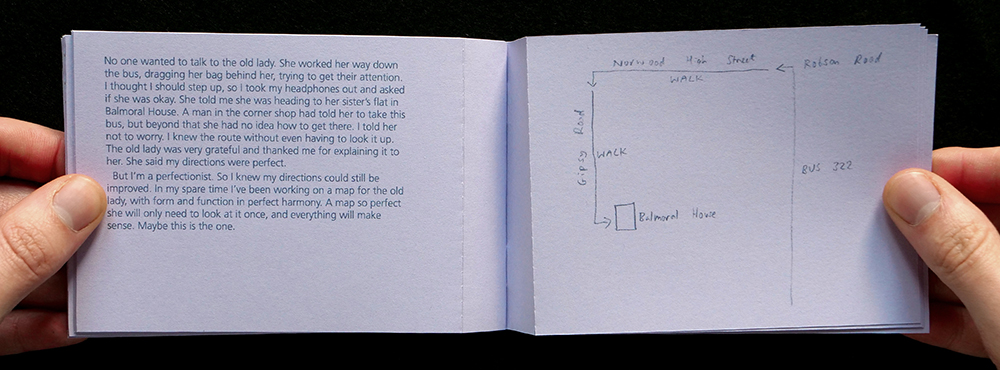 No one wanted to talk to the old lady. She worked her way down
the bus, dragging her bag behind her, trying to get their attention.
I thought I should step up, so I took my headphones out and asked
if she was okay. She told me she was heading to her sister's flat in
Balmoral House. A man in the corner shop had told her to take this
bus, but beyond that she had no idea how to get there. I told her
not to worry. I knew the route without even having to look it up.
The old lady was very grateful and thanked me for explaining it to
her. She said my directions were perfect.
But I'm a perfectionist. So I knew my directions could still be
improved. In my spare time I've been working on a map for the old
lady, with form and function in perfect harmony. A map so perfect
she will only need to look at it once, and everything will make
sense. Maybe this is the one.
Norwood High Street
Robson Road
WALK
Gipsy Road
WALK
BUS 322
Balmoral House